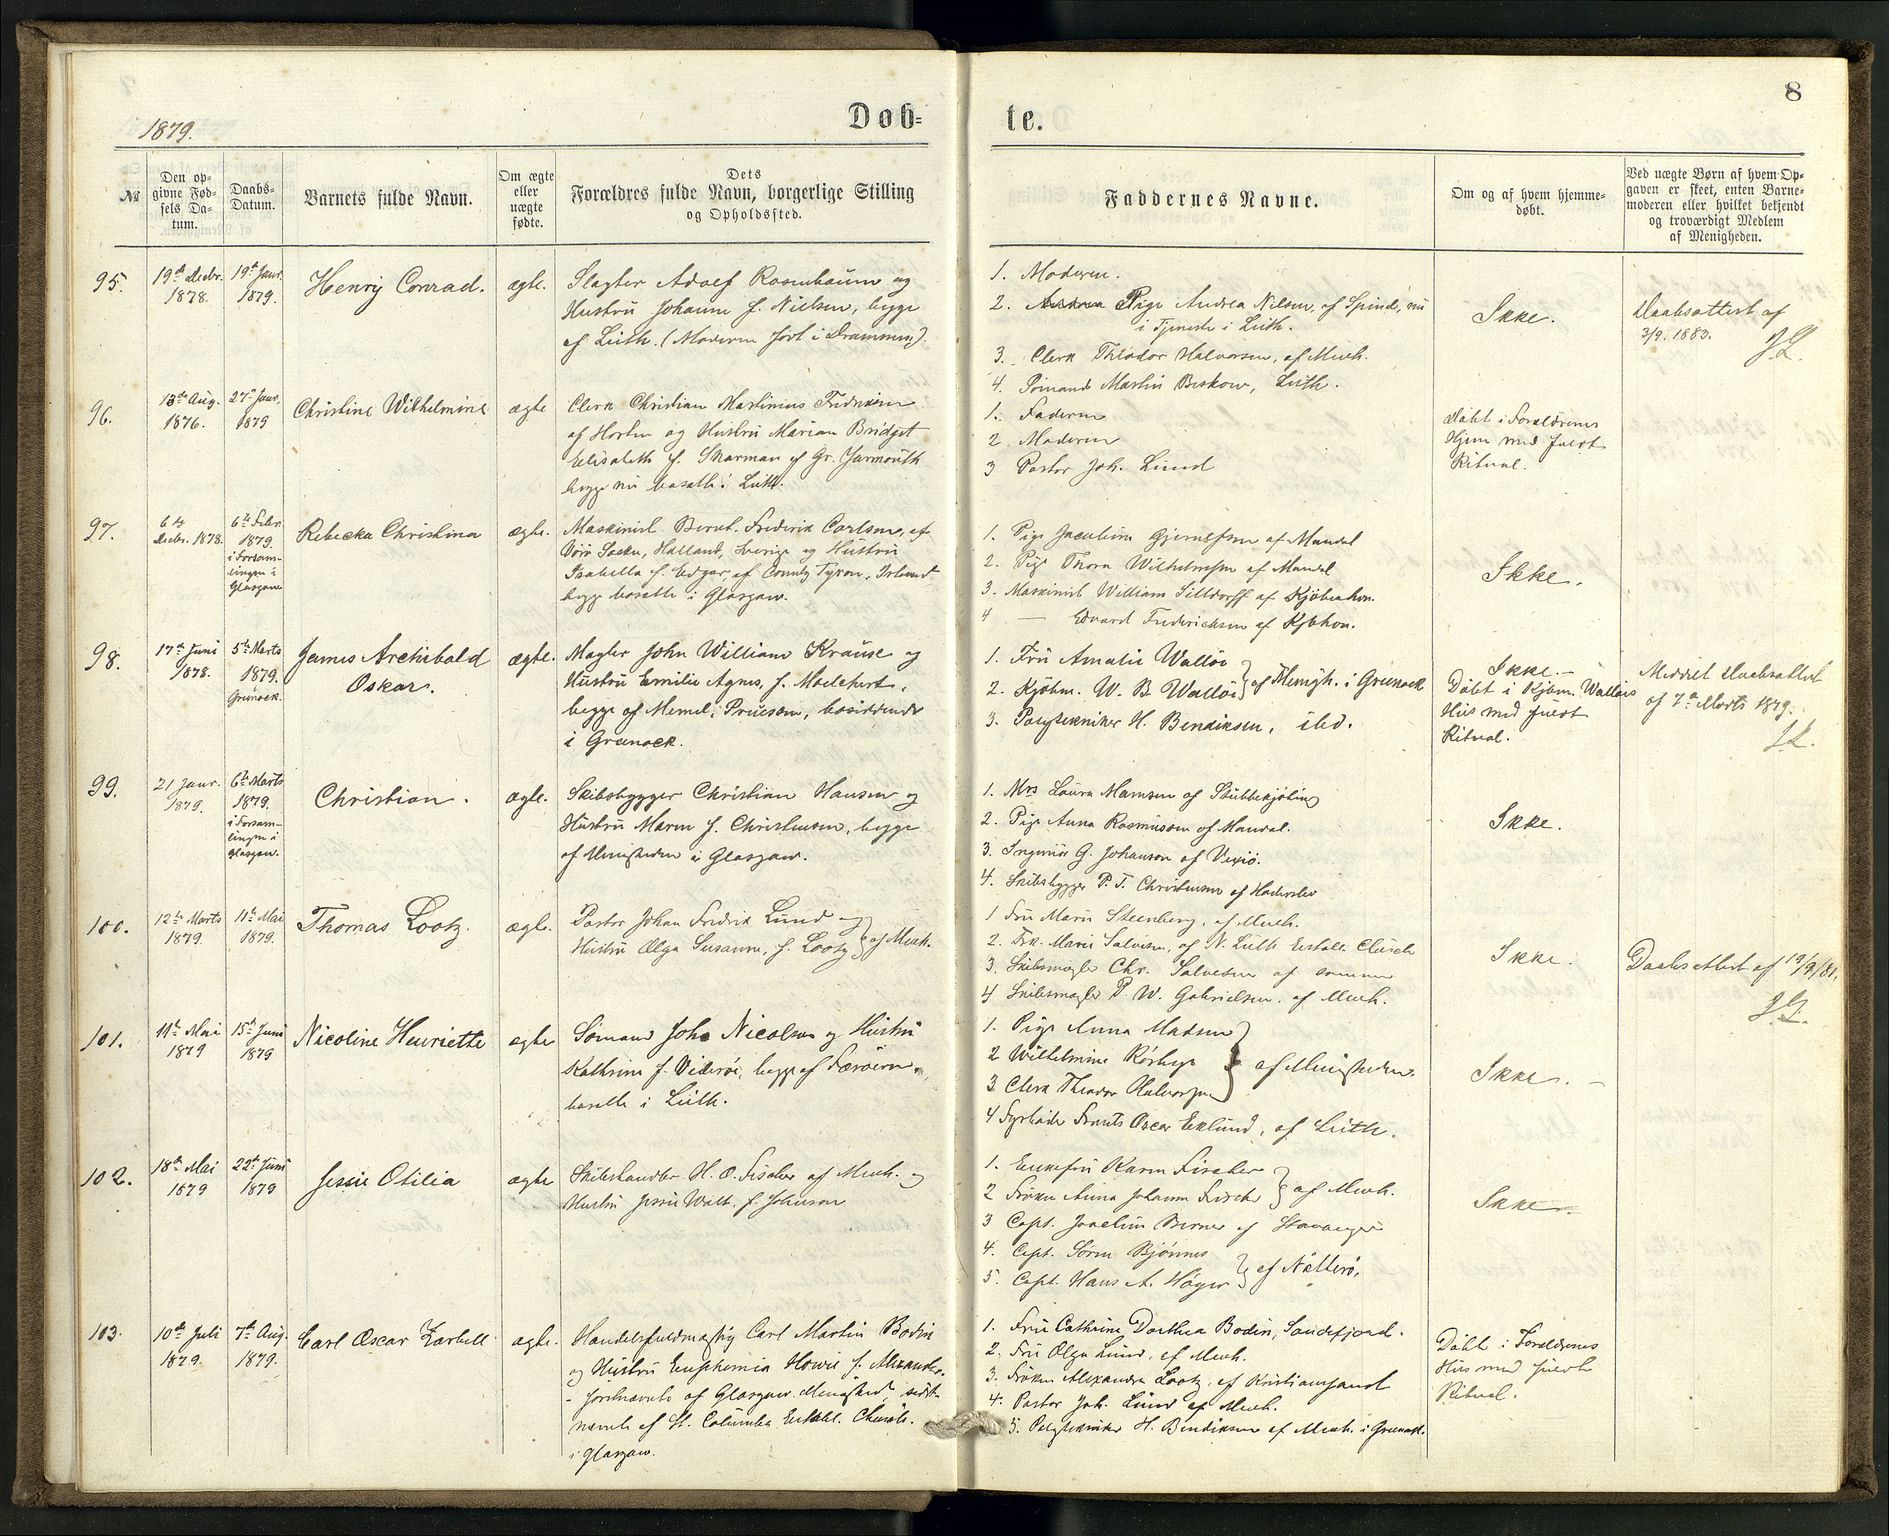 8
1879.
Døb-
te.
№
Den op-
givne Fød-
sels Da-
tum.
Daabs-
Datum.
Barnets fulde Navn.
Om ægte
eller
uægte
fødte.
Dets
Forældres fulde Navn, borgerlige Stilling
og Opholdssted.
Faddernes Navne.
Om og af hvem hjemme-
døbt.
Ved uægte Børn af hvem Op-
gaven er skeet, enten Barne-
moderen eller hvilket bekjendt
og troværdigt Medlem
af Menigheden.
95.
19de Decbr.
1878.
19de Janr.
1879.
Henry Conrad.
ægte.
Slagter Adolf Rosenbaum og
Hustru Johanne f. Nielsen, begge
af Leith. (Moderen født i Drammen).
1. Moderen.
2. Pige Andrea Nilsen, af Spind, nu
i Tjeneste i Leith.
3. Clerk Theodor Halvorsen, af Menh.
4. Sømand Martin Beskow, Leith.
Ikke.
Daabsattest af
3/9. 1883.
J.L.
96.
13de Aug.
1876.
27de Janr.
1879
Christine Wilhelmine
ægte
Clerk Christian Martinius Fredriksen
af Horten og Hustru Marian Bridget
Elisabeth f. Sharman af Gr. Yarmouth
begge nu bosatte i Leith.
1. Faderen
2. Moderen
3 Pastor Joh. Lund
Døbt i Forældrenes
Hjem med fuldt
Ritual.
97.
6te
Decbr. 1878.
6te Febr.
1879.
i Forsam-
lingen i
Glasgow
Rebecka Christina
ægte.
Maskinist Bernt. Frederik Carlson, af
Sockn, Halland, Sverige og Hustru
Isabella f. Edgar, af County Tyron, Irland
begge bosatte i Glasgow.
1. Pige Jacobine af Mandal
2. Pige Thora Wilhelmsen af Mandal
3. Maskinist William Silldorff af Kjøbenhvn.
4 — Edvard Frederichsen af Kjbhvn.
Ikke.
98.
17de Juni
1878.
5te Marts
1879.
Grenock.
James Archibald
Oskar.
ægte.
Mægler John William Krause og
Hustru Emilie Agnes, f. Melchert,
begge af Memel, i Preussen, bosiddende
i Greenock.
1. Fru Amalie Walløe
2. Kjøbm. W. B Walløe } af Menigh. i Greenock
3. Polytekniker H. Bendiksen, ibd.
Ikke.—
Døbt i Kjbm. Walløes
Hus med fuldt
Ritual.
Meddelt Daabsattest
af 7de Marts 1879.
J.L.
99.
21 Janr.
1879.
6te Marts
1879.
i Forsam-
lingen i
Glasgow.
Christian.
ægte.
Skibsbygger Christian Hansen og
Hustru Maren f. Christensen, begge
af Menigheden i Glasgow.
1. Mrs Laura Hamsen af Stubbekjøbing
2. Pige Anna Rasmussen af Mandal.
3. Ingeniør G. Johanson af Vexiö.
4. Skibsbygger P. T. Christensen af Haderslev
Ikke.
100.
12te Marts
1879.
11te Mai
1879.
Thomas Lootz.
ægte.
Pastor Johan Fredrik Lund og
Hustru Olga Susanne, f. Lootz } af Menh.
1 Fru Marie Steenberg, af Menh.
2. Frk. Marie Salvesen, af N. Leith Establ. Church
3. Skibsmægler Chr. Salvesen af samme
4 Skibsmægler P. W. Gabrielsen. af Menh.
Ikke.
Daabsattest af 19/9/81.
J.L.
101.
11te Mai
1879
15de Juni
1879
Nicoline Henriette
ægte
Sømand Joh. Nicolsen og Hustru
Kathrine f. Viderøe, begge af Færøerne,
bosatte i Leith.
1. Pige Anna Madsen
2 Wilhelmine
3. Clerk Theodor Halvorsen } af Menigheden.
4 Fyrbøder Oscar Eklund, af Leith.
Ikke.
102.
18de Mai
1879
22de Juni
1879
Jessie Otilia
ægte
Skibshandler H. O. Fischer af Menh. og
Hustru Jessie Watt. f. Johanson
1. Enkefru Karen Fischer
2 Frøken Anna Johanne Fischer } af Menh.
3 Capt. Joachim Berner af Stavanger
4. Capt. Søren Bjønnes
5. Capt. Hans A. Høyer } af Nøtterø.
Ikke.
103.
10de Juli
1879.
7de Aug.
1879.
Carl Oscar
ægte.
Handelsfuldmægtig Carl Martin Bodin
og Hustru Euphemia Howie f. Alexander,
førstnævnte af Glasgow Menighed, sidst-
nævnte af St. Columba Establ. Church.
i Glasgow.
1. Fru Cathrine Dorthea Bodin, Sandefjord.
2. Fru Olga Lund, af Menh.
3. Frøken Alexandra Lootz, af Kristiansand
4. Pastor Joh. Lund af Menh.
5. Polytekniker H. Bendiksen af Menh. i Greenock.
Døbt i Forældrenes
Hus med fuldt
Ritual.